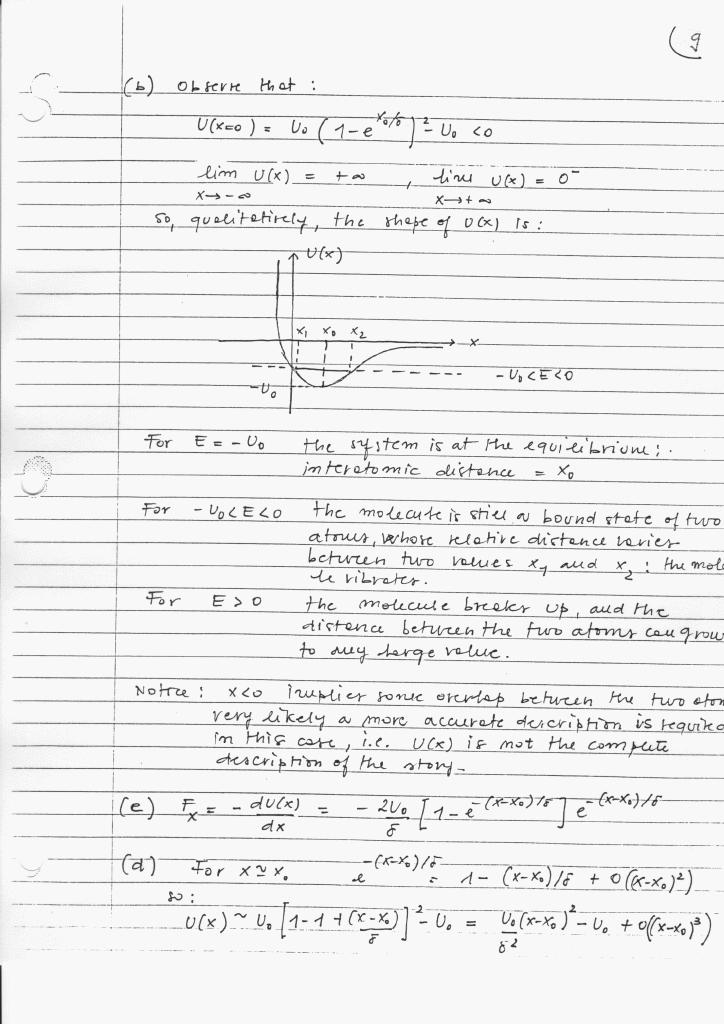 9
(b) Observe that :
U(x=0) = U₀ (1-e^(x₀/δ))² - U₀ <0
lim U(x) = +∞ , lim U(x) = 0⁻
x→-∞ x→+∞
so, qualitatively, the shape of U(x) is :
U(x)
x₁ x₀ x₂
x
-U₀<E<0
-U₀
For E = -U₀ the system is at the equilibrium :
interatomic distance = x₀
For -U₀<E<0 the molecule is still a bound state of two
atoms, whose relative distance varies
between two values x₁ and x₂ : the mole
le vibrates.
For E>0 the molecule breaks up, and the
distance between the two atoms can grow
to any large value.
Notice : x<0 implies some overlap between the two atom
very likely a more accurate description is required
in this case, i.e. U(x) is not the complete
description of the story-
(c) Fₓ = - dU(x)/dx = - 2U₀/δ [1-e^(-(x-x₀)/δ)] e^(-(x-x₀)/δ)
(d) For x≃x₀ e^(-(x-x₀)/δ) = 1- (x-x₀)/δ + O((x-x₀)²)
so :
U(x) ~ U₀ [1-1+(x-x₀)/δ]² - U₀ = U₀(x-x₀)²/δ² - U₀ + O((x-x₀)³)